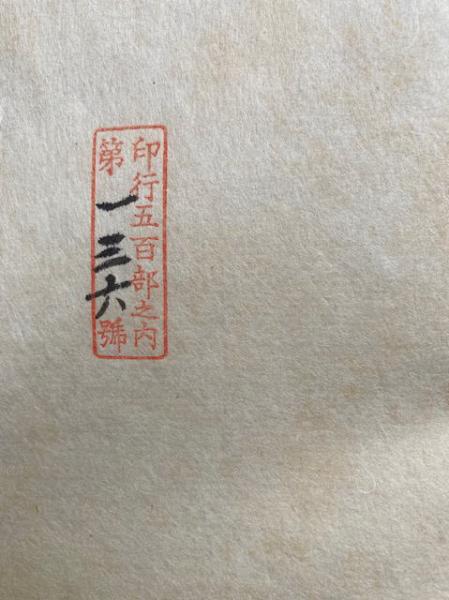 印行五百部之內
第一三六號